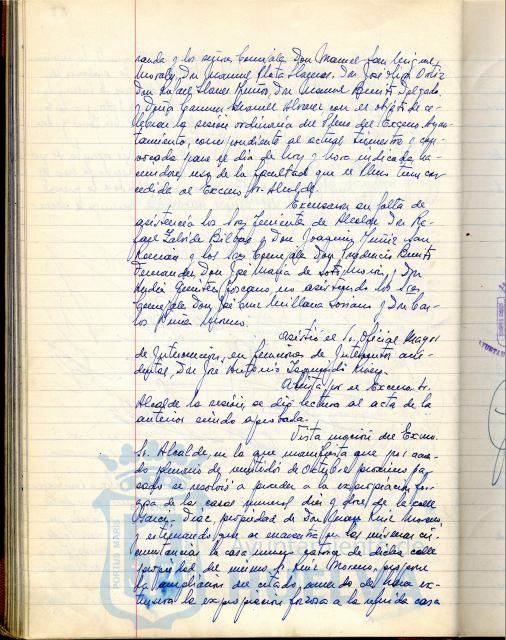 randa y los señores Concejales Don Manuel San Miguel
Morales, Don Manuel Plata Llagunes, Don José Ortiz
Don Rafael Llanes Muñoz, Don Manuel Benito Delgado,
y Doña Carmen Álvarez con el objeto de ce-
lebrar la sesión ordinaria del Pleno del Excmo. Ayun-
tamiento, correspondiente al actual trimestre y con-
vocada para el día de hoy y hora indicada, ha-
ciendose uso de la facultad que el Pleno tiene con-
cedida al Excmo. Sr. Alcalde.
Excusaron su falta de
asistencia los Sres. Tenientes de Alcalde Don Ra-
fael Bilbao y Don Joaquín Núñez San
Román y los Sres. Concejales Don Prudencio Benito
Fernández, Don José María de Soto, y Don
no asistiendo los Sres.
Concejales Don José Cruz Millana Soriano y Don Car-
los Moreno.
Asistió el Sr. Oficial Mayor
de Intervención, en funciones de Interventor acci-
dental, Don José Antonio
Abierta por el Excmo. Sr.
Alcalde la sesión, se dió lectura al acta de la
anterior siendo aprobada.
Vista moción del Excmo.
Sr. Alcalde, en la que manifiesta que por acuer-
do plenario de veintidós de Octubre próximo pa-
sado se resolvió proceder a la expropiación for-
zosa de las casas números diez y doce de la calle
Garci-Díaz, propiedad de Don Juan Ruiz Moreno,
y estimando que se encuentra en las mismas cir-
cunstancias la casa número catorce de dicha calle
propiedad del mismo Sr. Ruiz Moreno, propone
la ampliación del citado acuerdo de hacer ex-
tensiva la expropiación forzosa a la referida casa
PORTUS MARIS
Ayuntamiento
HUELVA
AYUNTAM